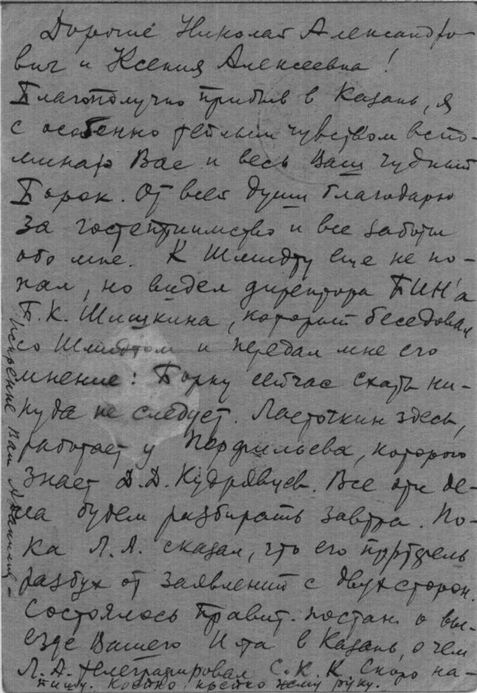 Дорогие Николай Александро-
вич и Ксения Алексеевна!
Благополучно прибыв в Казань, я
с особенно теплым чувством вспо-
минаю Вас и весь Ваш чудный
Борок. От всей души благодарю
за гостеприимство и все заботы
обо мне. К Шмидту еще не по-
пал, но видел директора БИН'а
Б. К. Шишкина, который беседовал
со Шмидтом и передал мне его
мнение: Борку сейчас ехать ни-
куда не следует. Ласточкин здесь,
работает у Порфирьева, которого
знает Д. Д. Кудрявцев. Все эти де-
ла будем разбирать завтра. По-
ка Л. А. сказал, что его портфель
разбух от заявлений с двух сторон.
Состоялось Правит. постан. о вы-
езде Вашего И-та в Казань, о чем
Л. А. телеграфировал С. К. К. Скоро на-
пишу. Крепко, крепко жму руку.
Искренне Ваш